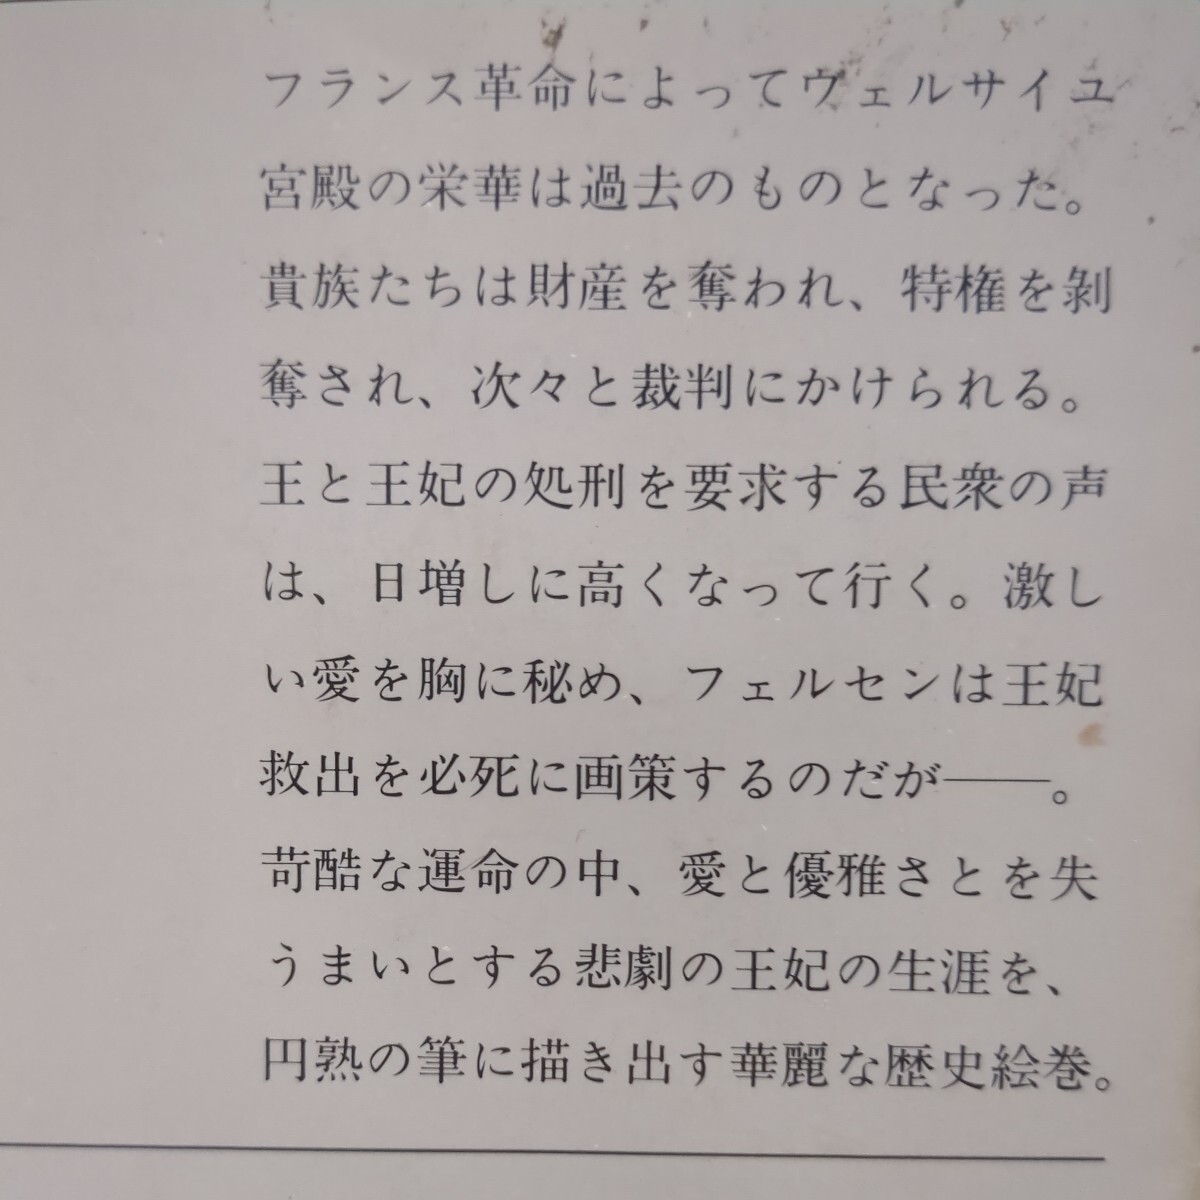 フランス革命によってヴェルサイユ
宮殿の栄華は過去のものとなった。
貴族たちは財産を奪われ、特権を剝
奪され、次々と裁判にかけられる。
王と王妃の処刑を要求する民衆の声
は、日増しに高くなって行く。激し
い愛を胸に秘め、フェルセンは王妃
救出を必死に画策するのだが――。
苛酷な運命の中、愛と優雅さとを失
うまいとする悲劇の王妃の生涯を、
円熟の筆に描き出す華麗な歴史絵巻。